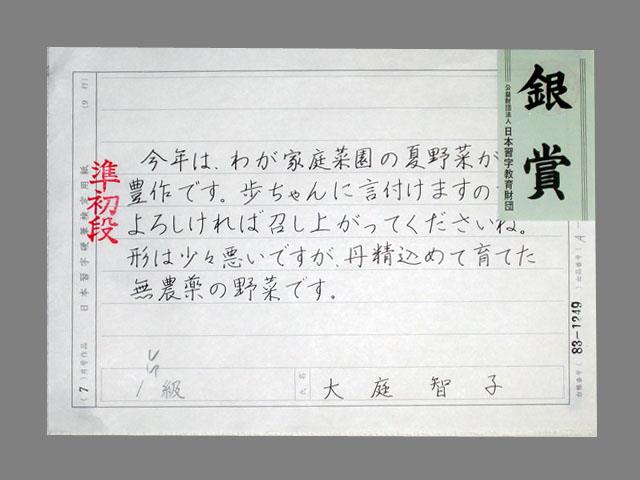 銀賞
公益財団法人 日本習字教育財団
今年は、わが家庭菜園の夏野菜が
豊作です。歩ちゃんに言付けますの
よろしければ召し上がってくださいね。
形は少々悪いですが、丹精込めて育てた
無農薬の野菜です。
準初段
日本習字硬筆検定用紙
(9 行)
(7)月号作品
級
氏名
大庭智子
出品番号( A
台帳番号(
83-1249